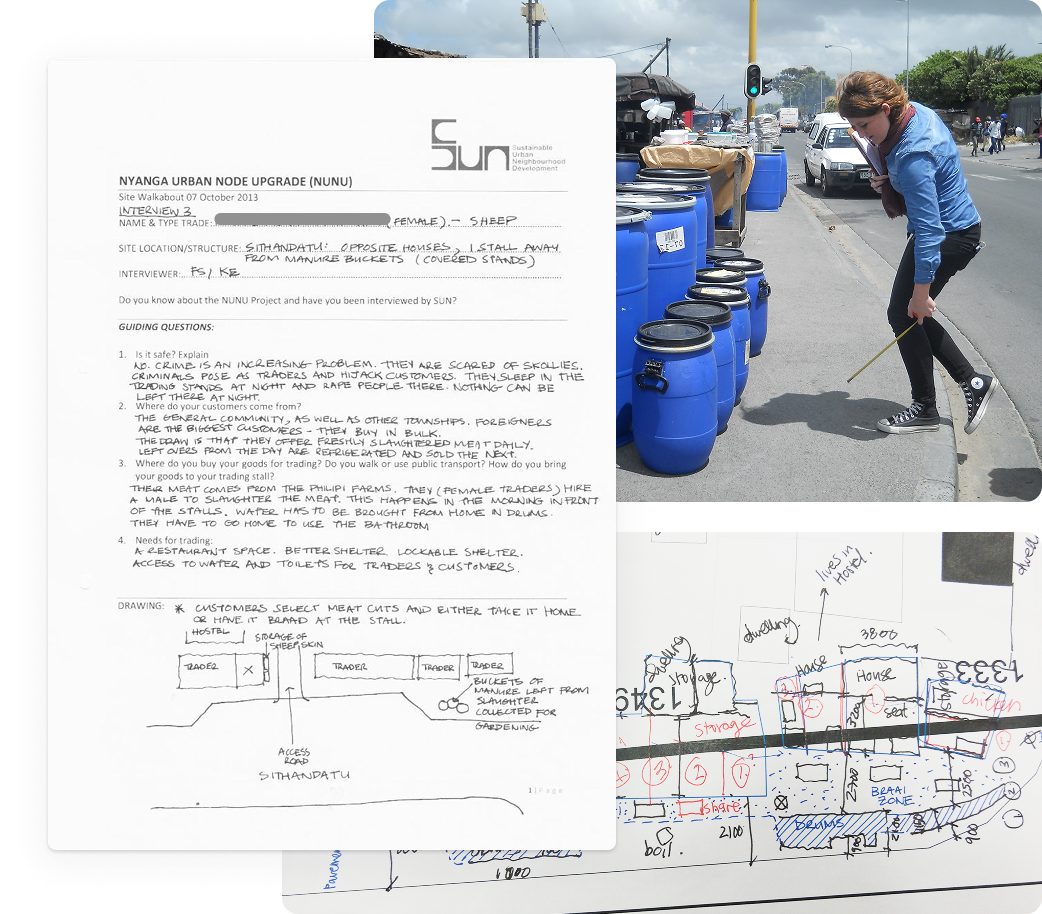 Sun
Sustainable
Urban
Neighbourhood
Development
NYANGA URBAN NODE UPGRADE (NUNU)
Site Walkabout 07 October 2013
INTERVIEW 3
NAME & TYPE TRADE: (FEMALE) - SHEEP
SITE LOCATION/STRUCTURE: SITHANDATU: OPPOSITE HOUSES, 1 STALL AWAY
FROM MANURE BUCKETS (COVERED STANDS)
INTERVIEWER: FS/ KE
Do you know about the NUNU Project and have you been interviewed by SUN?
GUIDING QUESTIONS:
1. Is it safe? Explain
NO. CRIME IS AN INCREASING PROBLEM. THEY ARE SCARED OF SKOLLIES.
CRIMINALS POSE AS TRADERS AND HIJACK CUSTOMERS. THEY SLEEP IN THE
TRADING STANDS AT NIGHT AND RAPE PEOPLE THERE. NOTHING CAN BE
LEFT THERE AT NIGHT.
2. Where do your customers come from?
THE GENERAL COMMUNITY, AS WELL AS OTHER TOWNSHIPS. FOREIGNERS
ARE THE BIGGEST CUSTOMERS - THEY BUY IN BULK.
THE DRAW IS THAT THEY OFFER FRESHLY SLAUGHTERED MEAT DAILY.
LEFT OVERS FROM THE DAY ARE REFRIGERATED AND SOLD THE NEXT.
3. Where do you buy your goods for trading? Do you walk or use public transport? How do you bring
your goods to your trading stall?
THEIR MEAT COMES FROM THE PHILIPI FARMS. THEY (FEMALE TRADERS) HIRE
A MALE TO SLAUGHTER THE MEAT. THIS HAPPENS IN THE MORNING IN FRONT
OF THE STALLS. WATER HAS TO BE BROUGHT FROM HOME IN DRUMS.
THEY HAVE TO GO HOME TO USE THE BATHROOM
4. Needs for trading:
A RESTAURANT SPACE. BETTER SHELTER. LOCKABLE SHELTER.
ACCESS TO WATER AND TOILETS FOR TRADERS & CUSTOMERS.
DRAWING: * CUSTOMERS SELECT MEAT CUTS AND EITHER TAKE IT HOME
OR HAVE IT BRAAID AT THE STALL.
HOSTEL
STORAGE OF
SHEEP SKIN
TRADER X TRADER TRADER TRADER
BUCKETS OF
MANURE LEFT FROM
SLAUGHTER
COLLECTED FOR
GARDENING
ACCESS
ROAD
SITHANDATU
1 | Page
lives in
Hostel.
dwell
dwelling.
3800
dwelling
storage.
House
House
storage
1333
1349
seat.
chicken
storage
3200
2
2
1
1
3
2
1
3
2
1
share
2700
BRAAI
ZONE
2500
DRUMS
2100
boil.
900
900